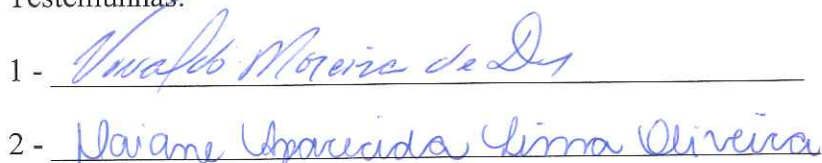 Testemunhas:
1 - Moreira de
2 - Daiane Aparecida Lima Oliveira